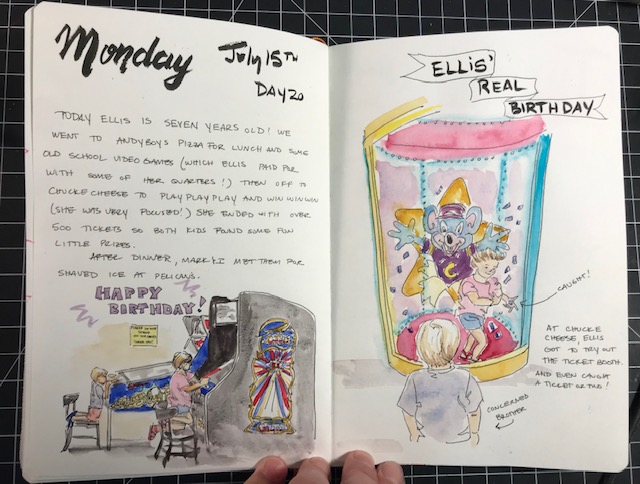 Monday
July 15TH
DAY 20
TODAY ELLIS IS SEVEN YEARS OLD! WE
WENT TO ANDYBOYS PIZZA FOR LUNCH AND SOME
OLD SCHOOL VIDEO GAMES (WHICH ELLIS PAID FOR
WITH SOME OF HER QUARTERS!) THEN OFF TO
CHUCKECHEESE TO PLAY PLAY PLAY AND WIN WIN WIN
(SHE WAS VERY FOCUSED!) SHE ENDED WITH OVER
500 TICKETS SO BOTH KIDS FOUND SOME FUN
LITTLE PRIZES.
AFTER DINNER, MARK & I MET THEM FOR
SHAVED ICE AT PELICANS.
HAPPY
BIRTHDAY!
ELLIS'
REAL
BIRTHDAY
C
CAUGHT!
AT CHUCKE
CHEESE, ELLIS
GOT TO TRY OUT
THE TICKET BOOTH.
AND EVEN CAUGHT
A TICKET OR TWO!
CONCERNED
BROTHER